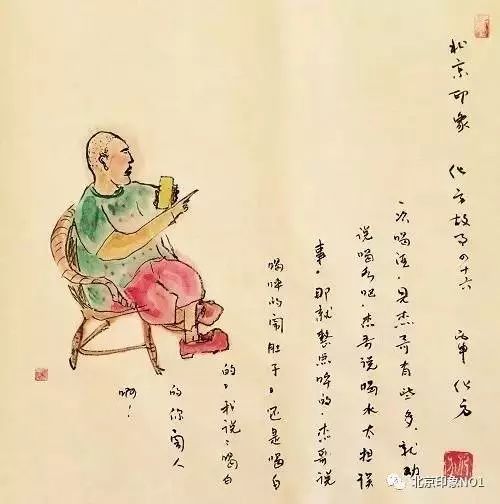 北京印象 化方故事の十六 丙申 化方
一次喝酒,见杰哥有些多,就劝
说喝水吧,杰哥说喝水太担误
事,那就整点啤的,杰哥说
喝啤的闹肚子,还是喝白
的,我说:喝白
的你闹人
啊!
北京印象NO1